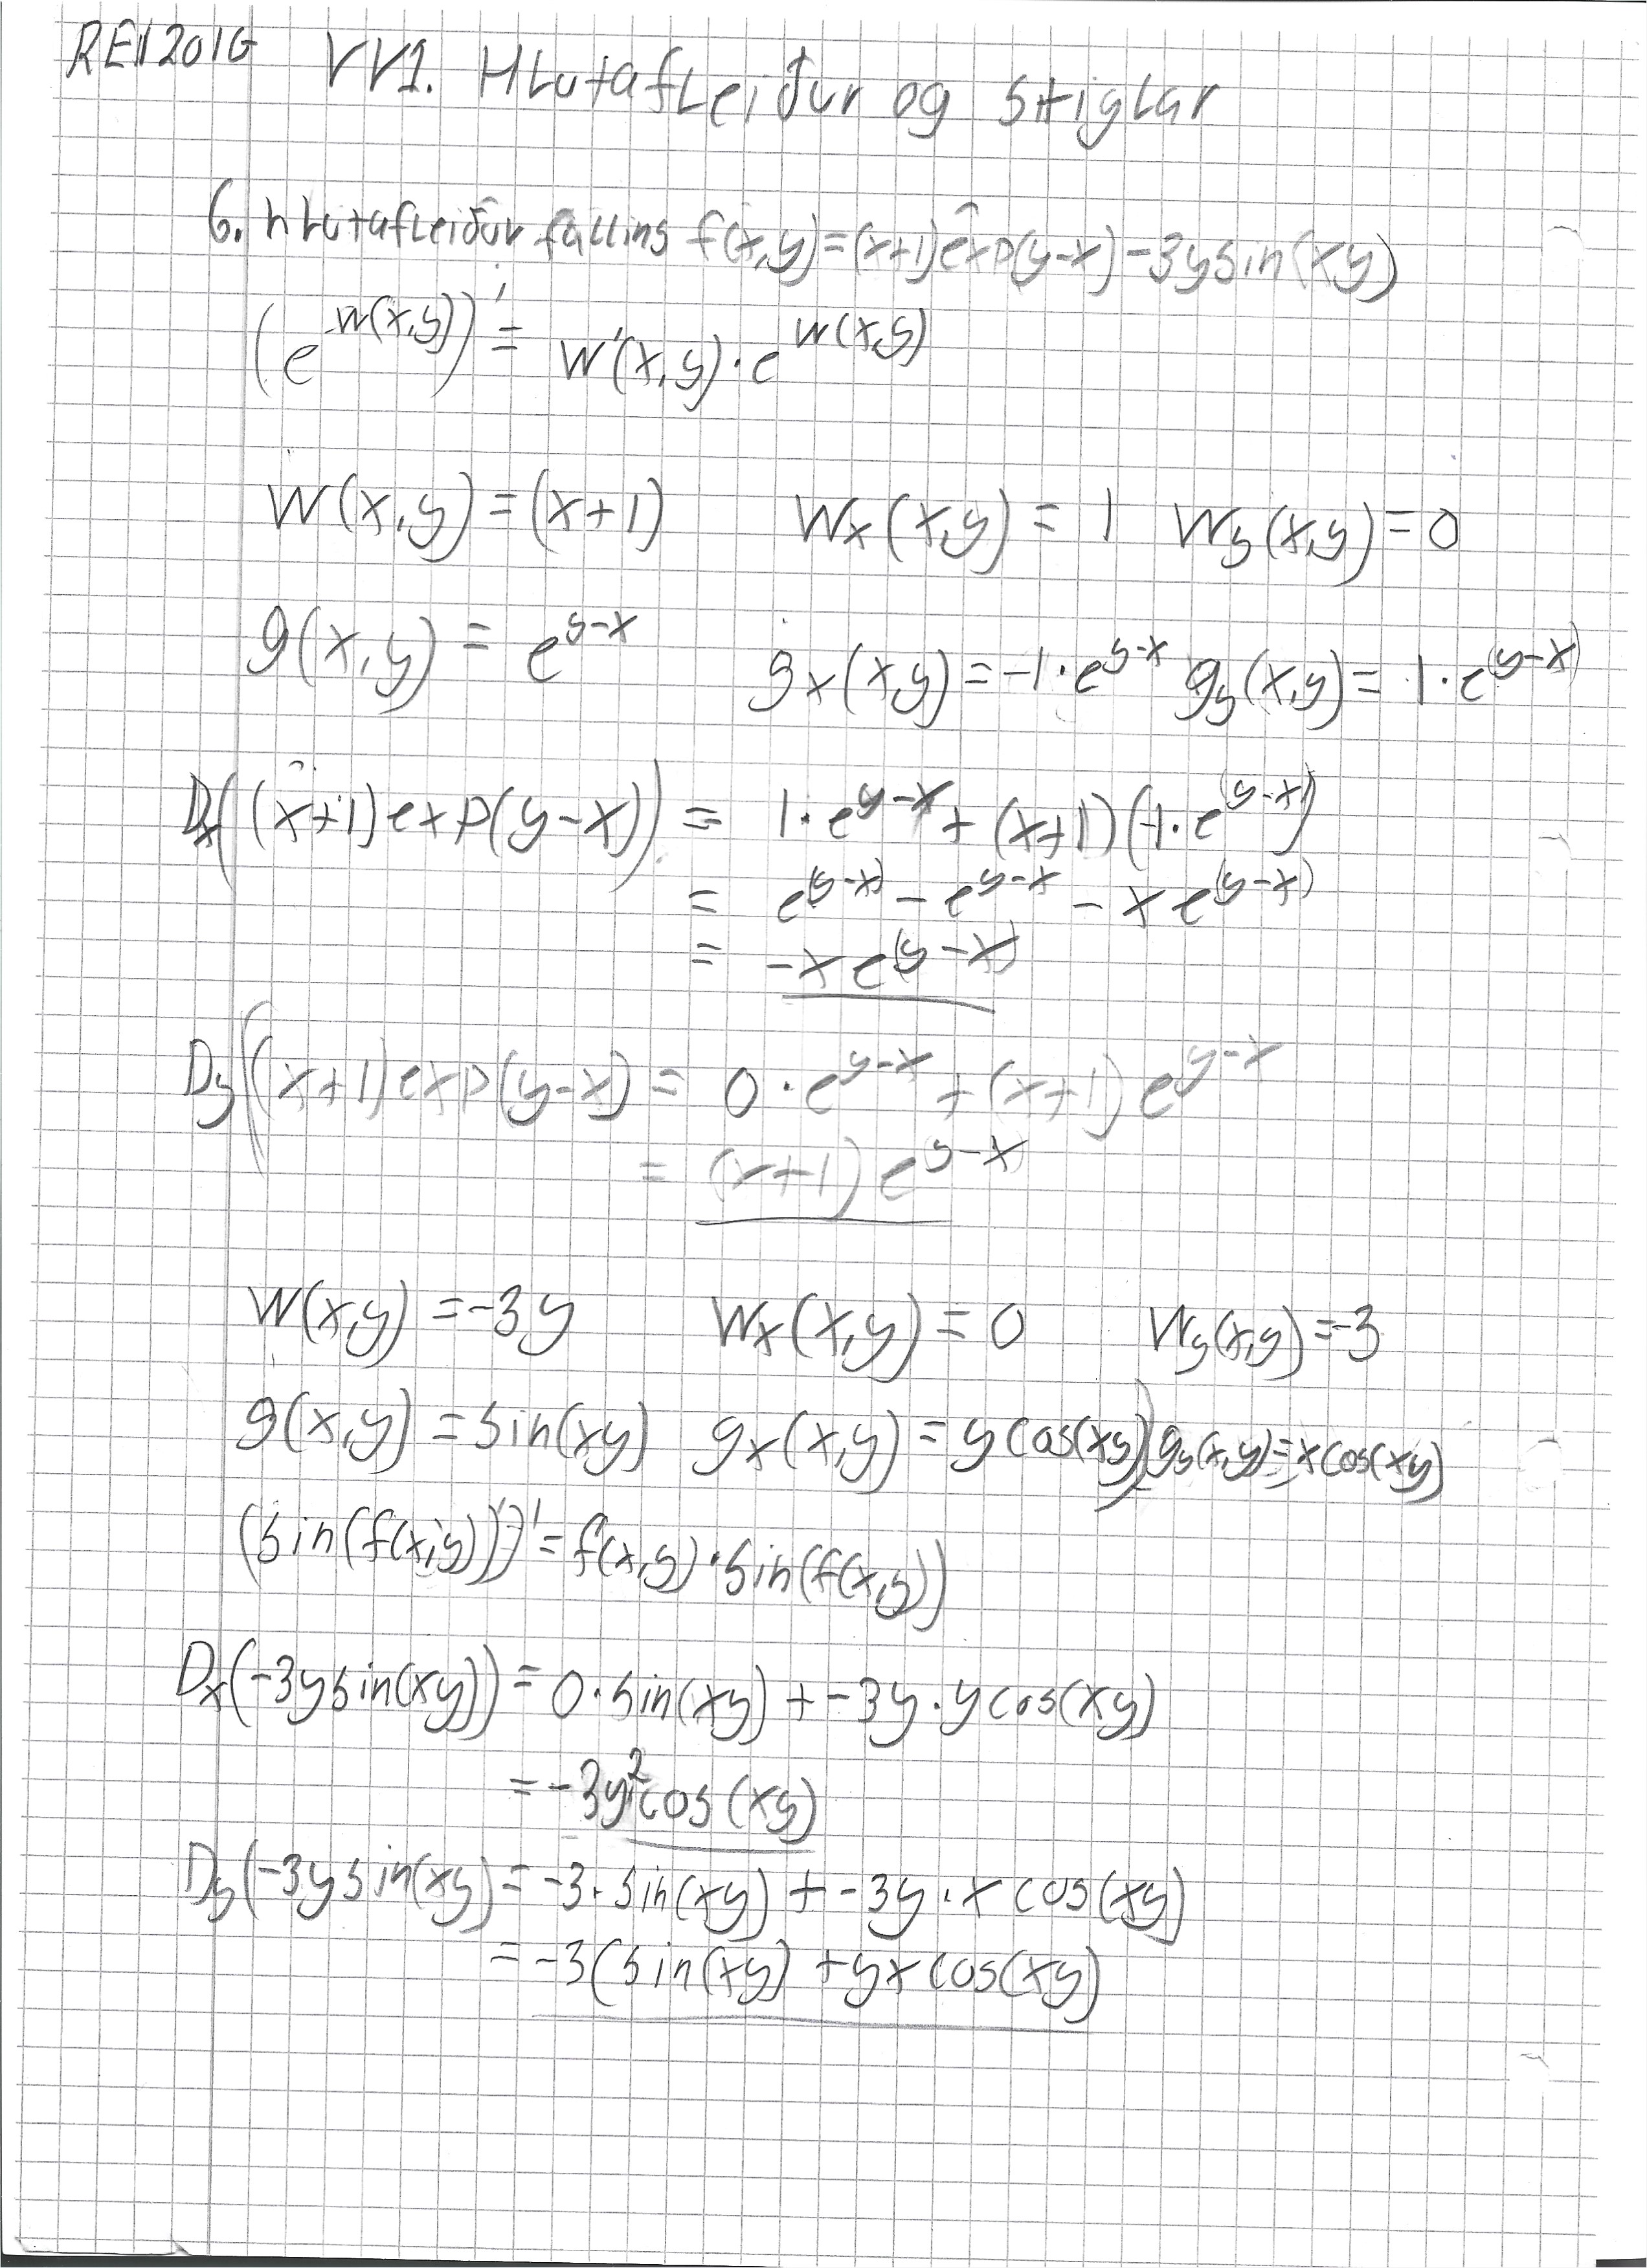 REI201G VV1. Hlutafleiður og stiglar
6. hlutafleiður fallins f(x,y)=(x+1)exp(y-x)-3ysin(xy)
(e^{w(x,y)})' = w'(x,y)·e^{w(x,y)}
W(x,y)=(x+1) W_x(x,y)=1 W_y(x,y)=0
g(x,y)=e^{y-x} g_x(x,y)=-1·e^{y-x} g_y(x,y)=1·e^{(y-x)}
D_x((x+1)exp(y-x)) = 1·e^{y-x}+(x+1)(-1·e^{(y-x)})
= e^{(y-x)} - e^{y-x} - xe^{(y-x)}
= -xe^{(y-x)}
D_y((x+1)exp(y-x) = 0·e^{y-x}+(x+1)e^{y-x}
= (x+1)e^{y-x}
W(x,y)=-3y W_x(x,y)=0 W_y(x,y)=-3
g(x,y)=sin(xy) g_x(x,y)=ycos(xy) g_y(x,y)=xcos(xy)
(sin(f(x,y)))'=f'(x,y)·sin(f(x,y))
D_x(-3ysin(xy))=0·sin(xy)+-3y·ycos(xy)
=-3y²cos(xy)
D_y(-3ysin(xy)=-3·sin(xy)+-3y·xcos(xy)
=-3(sin(xy)+yxcos(xy)